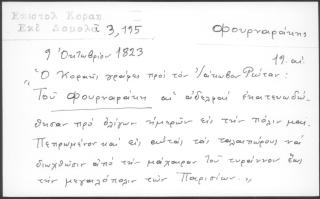 Επιστολ Κοραη
Εκδ Δαμαλᾶ 3, 195
Φουρναράκης
9 Ὀκτωβρίου 1823
19. αι
"Ὁ Κοραῆς γράφει πρὸς τὸν Ἰάκωβον Ρώταν:
Τοῦ Φουρναράκη αἱ ἀδελφαὶ ἐκατευωδώ-
θησαν πρὸ ὀλίγων ἡμερῶν εἰς τὴν πόλιν μας.
Πεπρωμένον καὶ εἰς αὐτὰς τὰς ταλαιπώρους νὰ
διωχθῶσιν ἀπὸ τὴν μάχαιραν τοῦ τυράννου ἕως
τὴν μεγαλόπολιν τῶν Παρισίων."